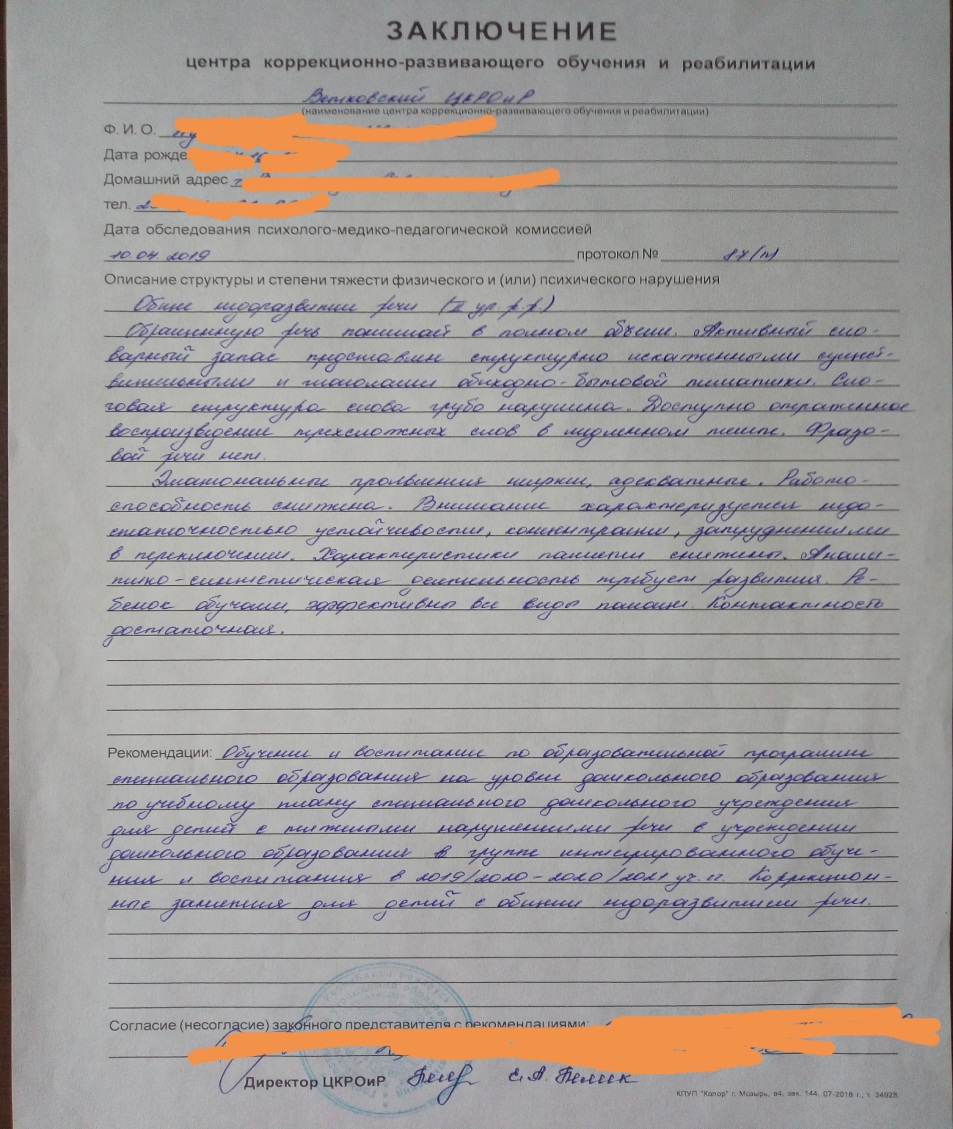 ЗАКЛЮЧЕНИЕ
центра коррекционно-развивающего обучения и реабилитации
Ветковский ЦКРОиР
(наименование центра коррекционно-развивающего обучения и реабилитации)
Ф. И. О.
Дата рожде
Домашний адрес
тел.
Дата обследования психолого-медико-педагогической комиссией
10.04.2019 протокол №
Описание структуры и степени тяжести физического и (или) психического нарушения
Общее недоразвитие речи (II ур. р.р.)
Обращенную речь понимает в полном объеме. Активный сло-
варный запас представлен структурно искаженными сущест-
вительными и глаголами обиходно-бытовой тематики. Сло-
говая структура слова грубо нарушена. Доступно отраженное
воспроизведение трехсложных слов в медленном темпе. Фразо-
вой речи нет.
Эмоциональные проявления широкие, адекватные. Работо-
способность снижена. Внимание характеризуется недо-
статочностью устойчивости, концентрации, затруднениями
в переключении. Характеристики памяти снижены. Анали-
тико-синтетическая деятельность требует развития. Ре-
бенок обучаем, эффективны все виды помощи. Контактность
достаточная.
Рекомендации: Обучение и воспитание по образовательной программе
специального образования на уровне дошкольного образования
по учебному плану специального дошкольного учреждения
для детей с тяжелыми нарушениями речи в учреждении
дошкольного образования в группе интегрированного обуче-
ния и воспитания в 2019/2020-2020/2021 уч. гг. Коррекцион-
ные занятия для детей с общим недоразвитием речи.
Согласие (несогласие) законного представителя с рекомендациями:
Директор ЦКРОиР Е. А.
КЛУП "Колор" г. Мозырь, в4, зак. 144, 07-2018 г., т. 34928.